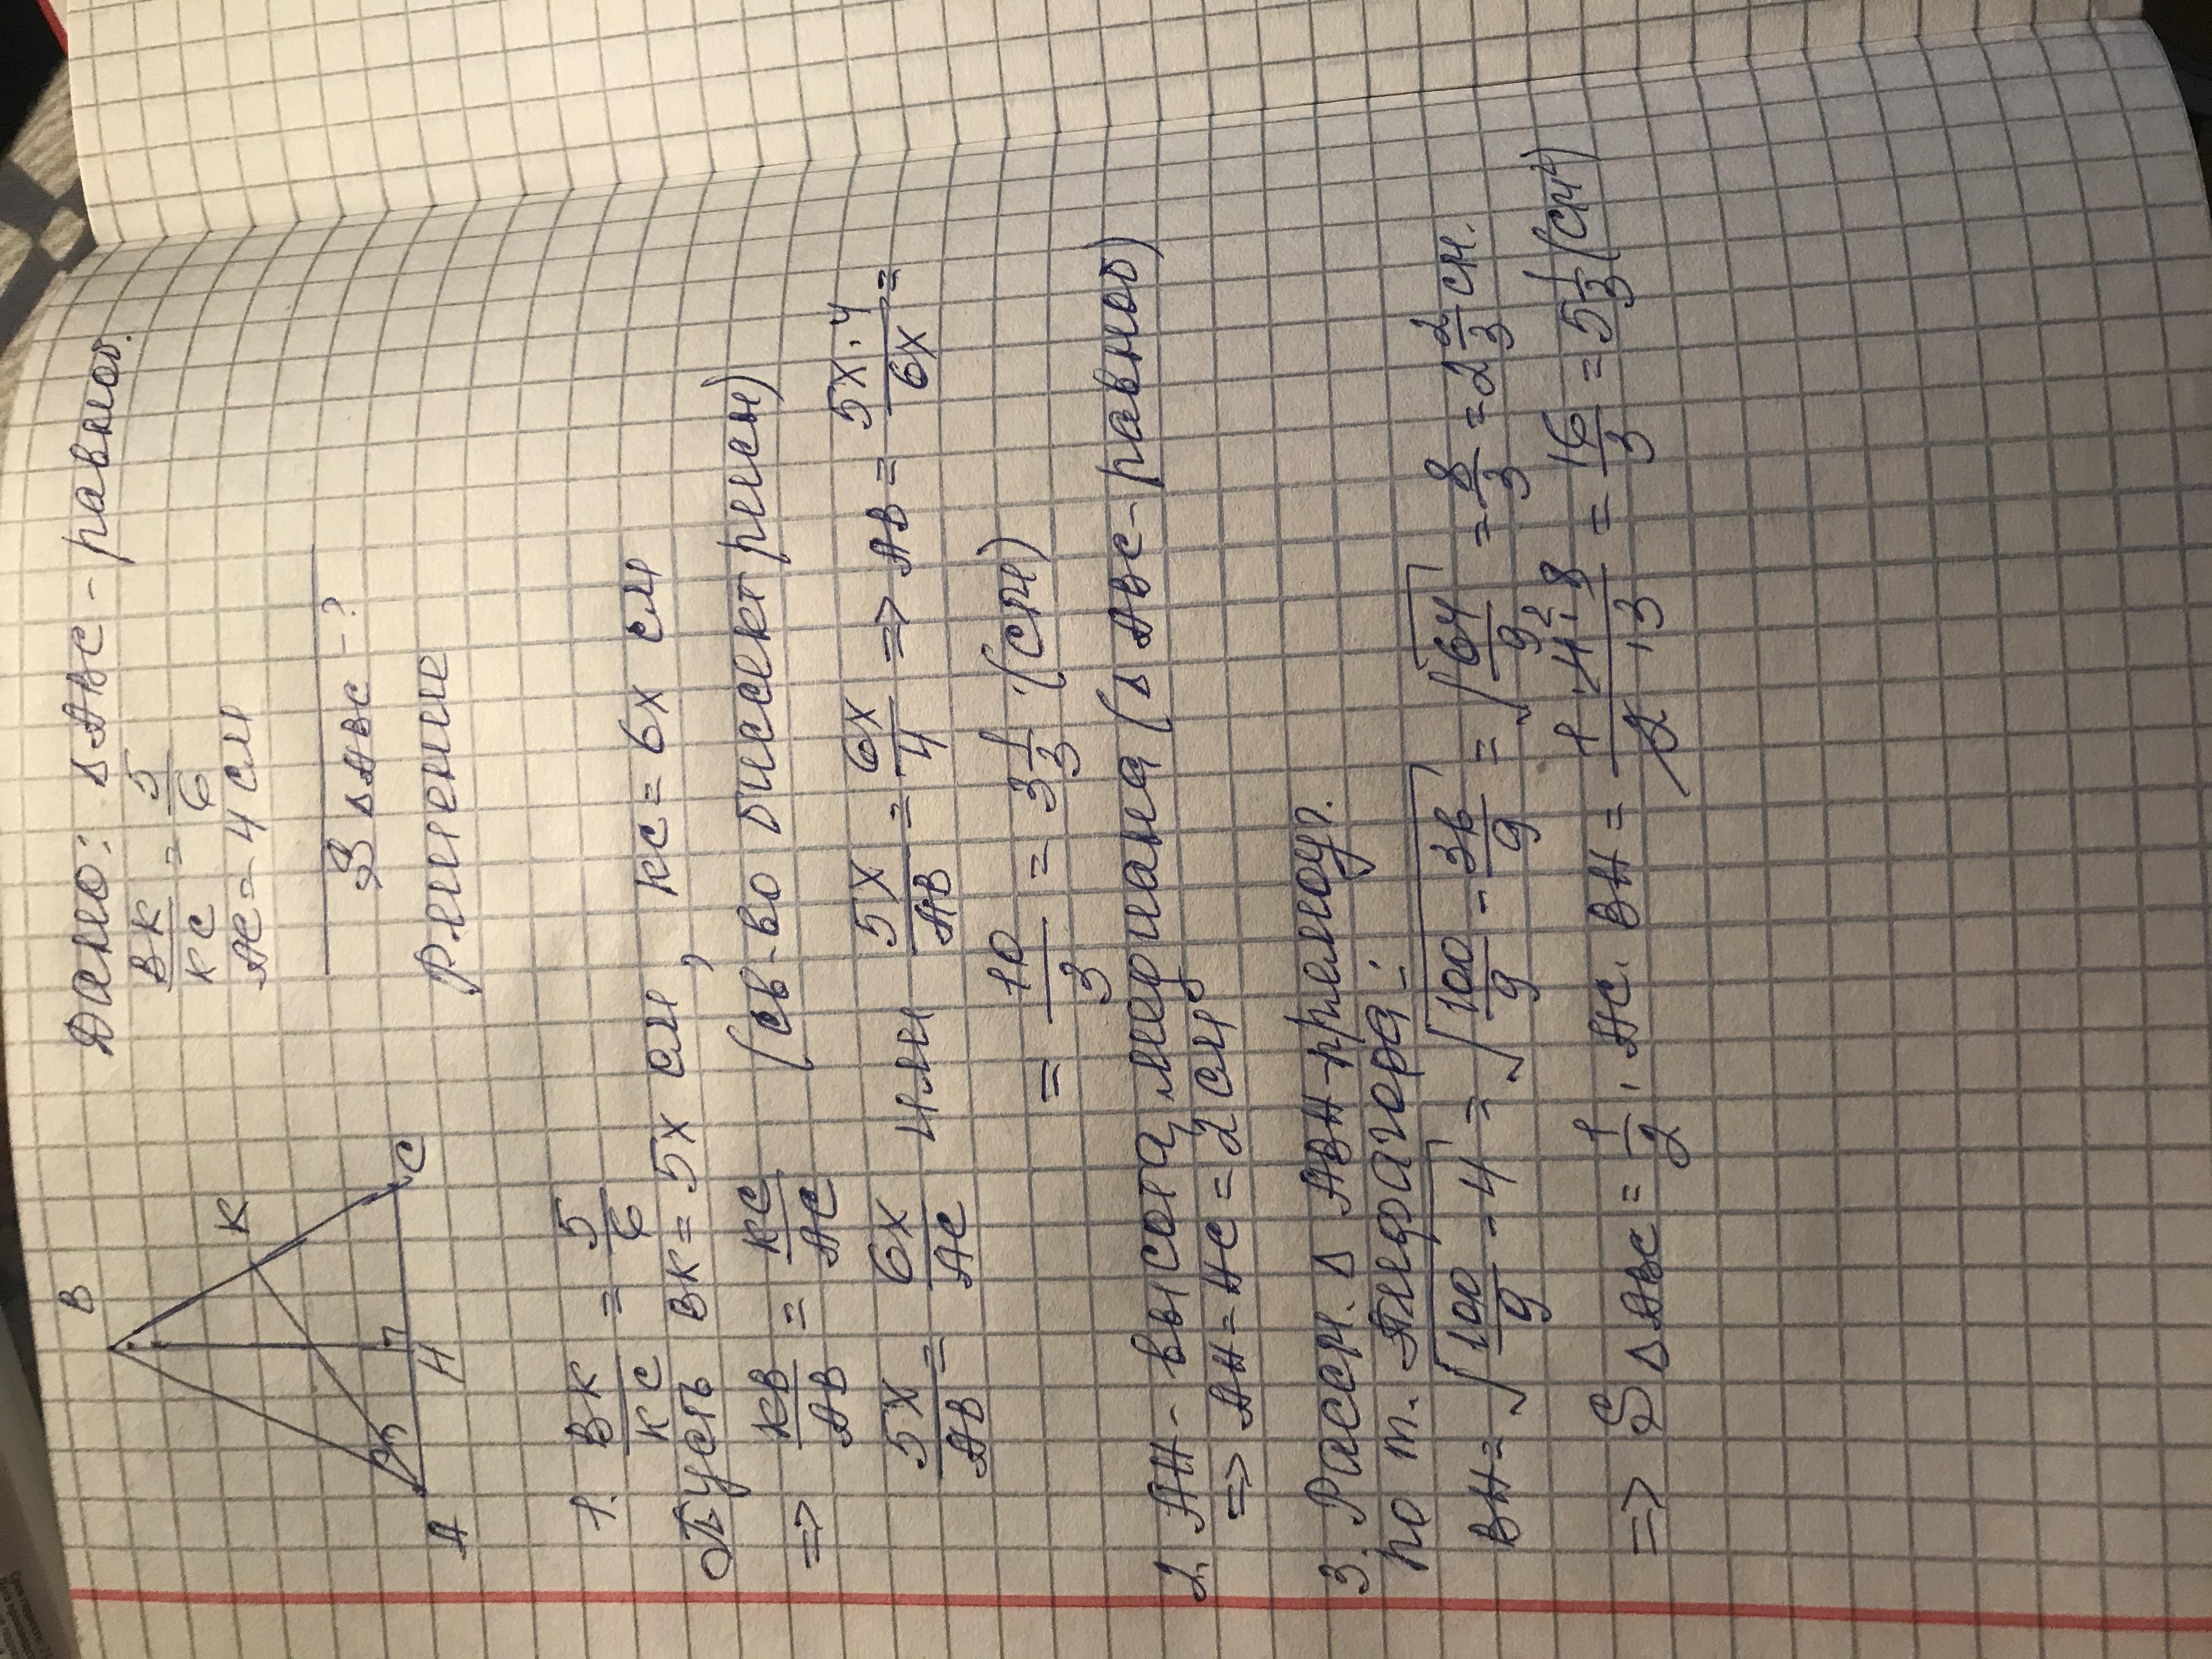 B
K
A
H
C
Дано: ΔABC - равноб.
BK/KC = 5/6
AC = 4 см
S ΔABC - ?
Решение
1. BK/KC = 5/6
Пусть BK = 5x см, KC = 6x см
=> KB/AB = KC/AC (св-во биссектрисы)
5x/AB = 6x/AC или 5x/AB = 6x/4 => AB = 5x·4/6x =
= 10/3 = 3 1/3 (см)
2. AH - высота, медиана (ΔABC - равноб)
=> AH = HC = 2 см
3. Рассм. Δ ABH - прямоуг.
по т. Пифагора:
BH = √(100/9 - 4) = √(100/9 - 36/9) = √(64/9) = 8/3 = 2 2/3 см.
=> S ΔABC = 1/2 · AC · BH = 1·4·8/2·3 = 16/3 = 5 1/3 (см²)